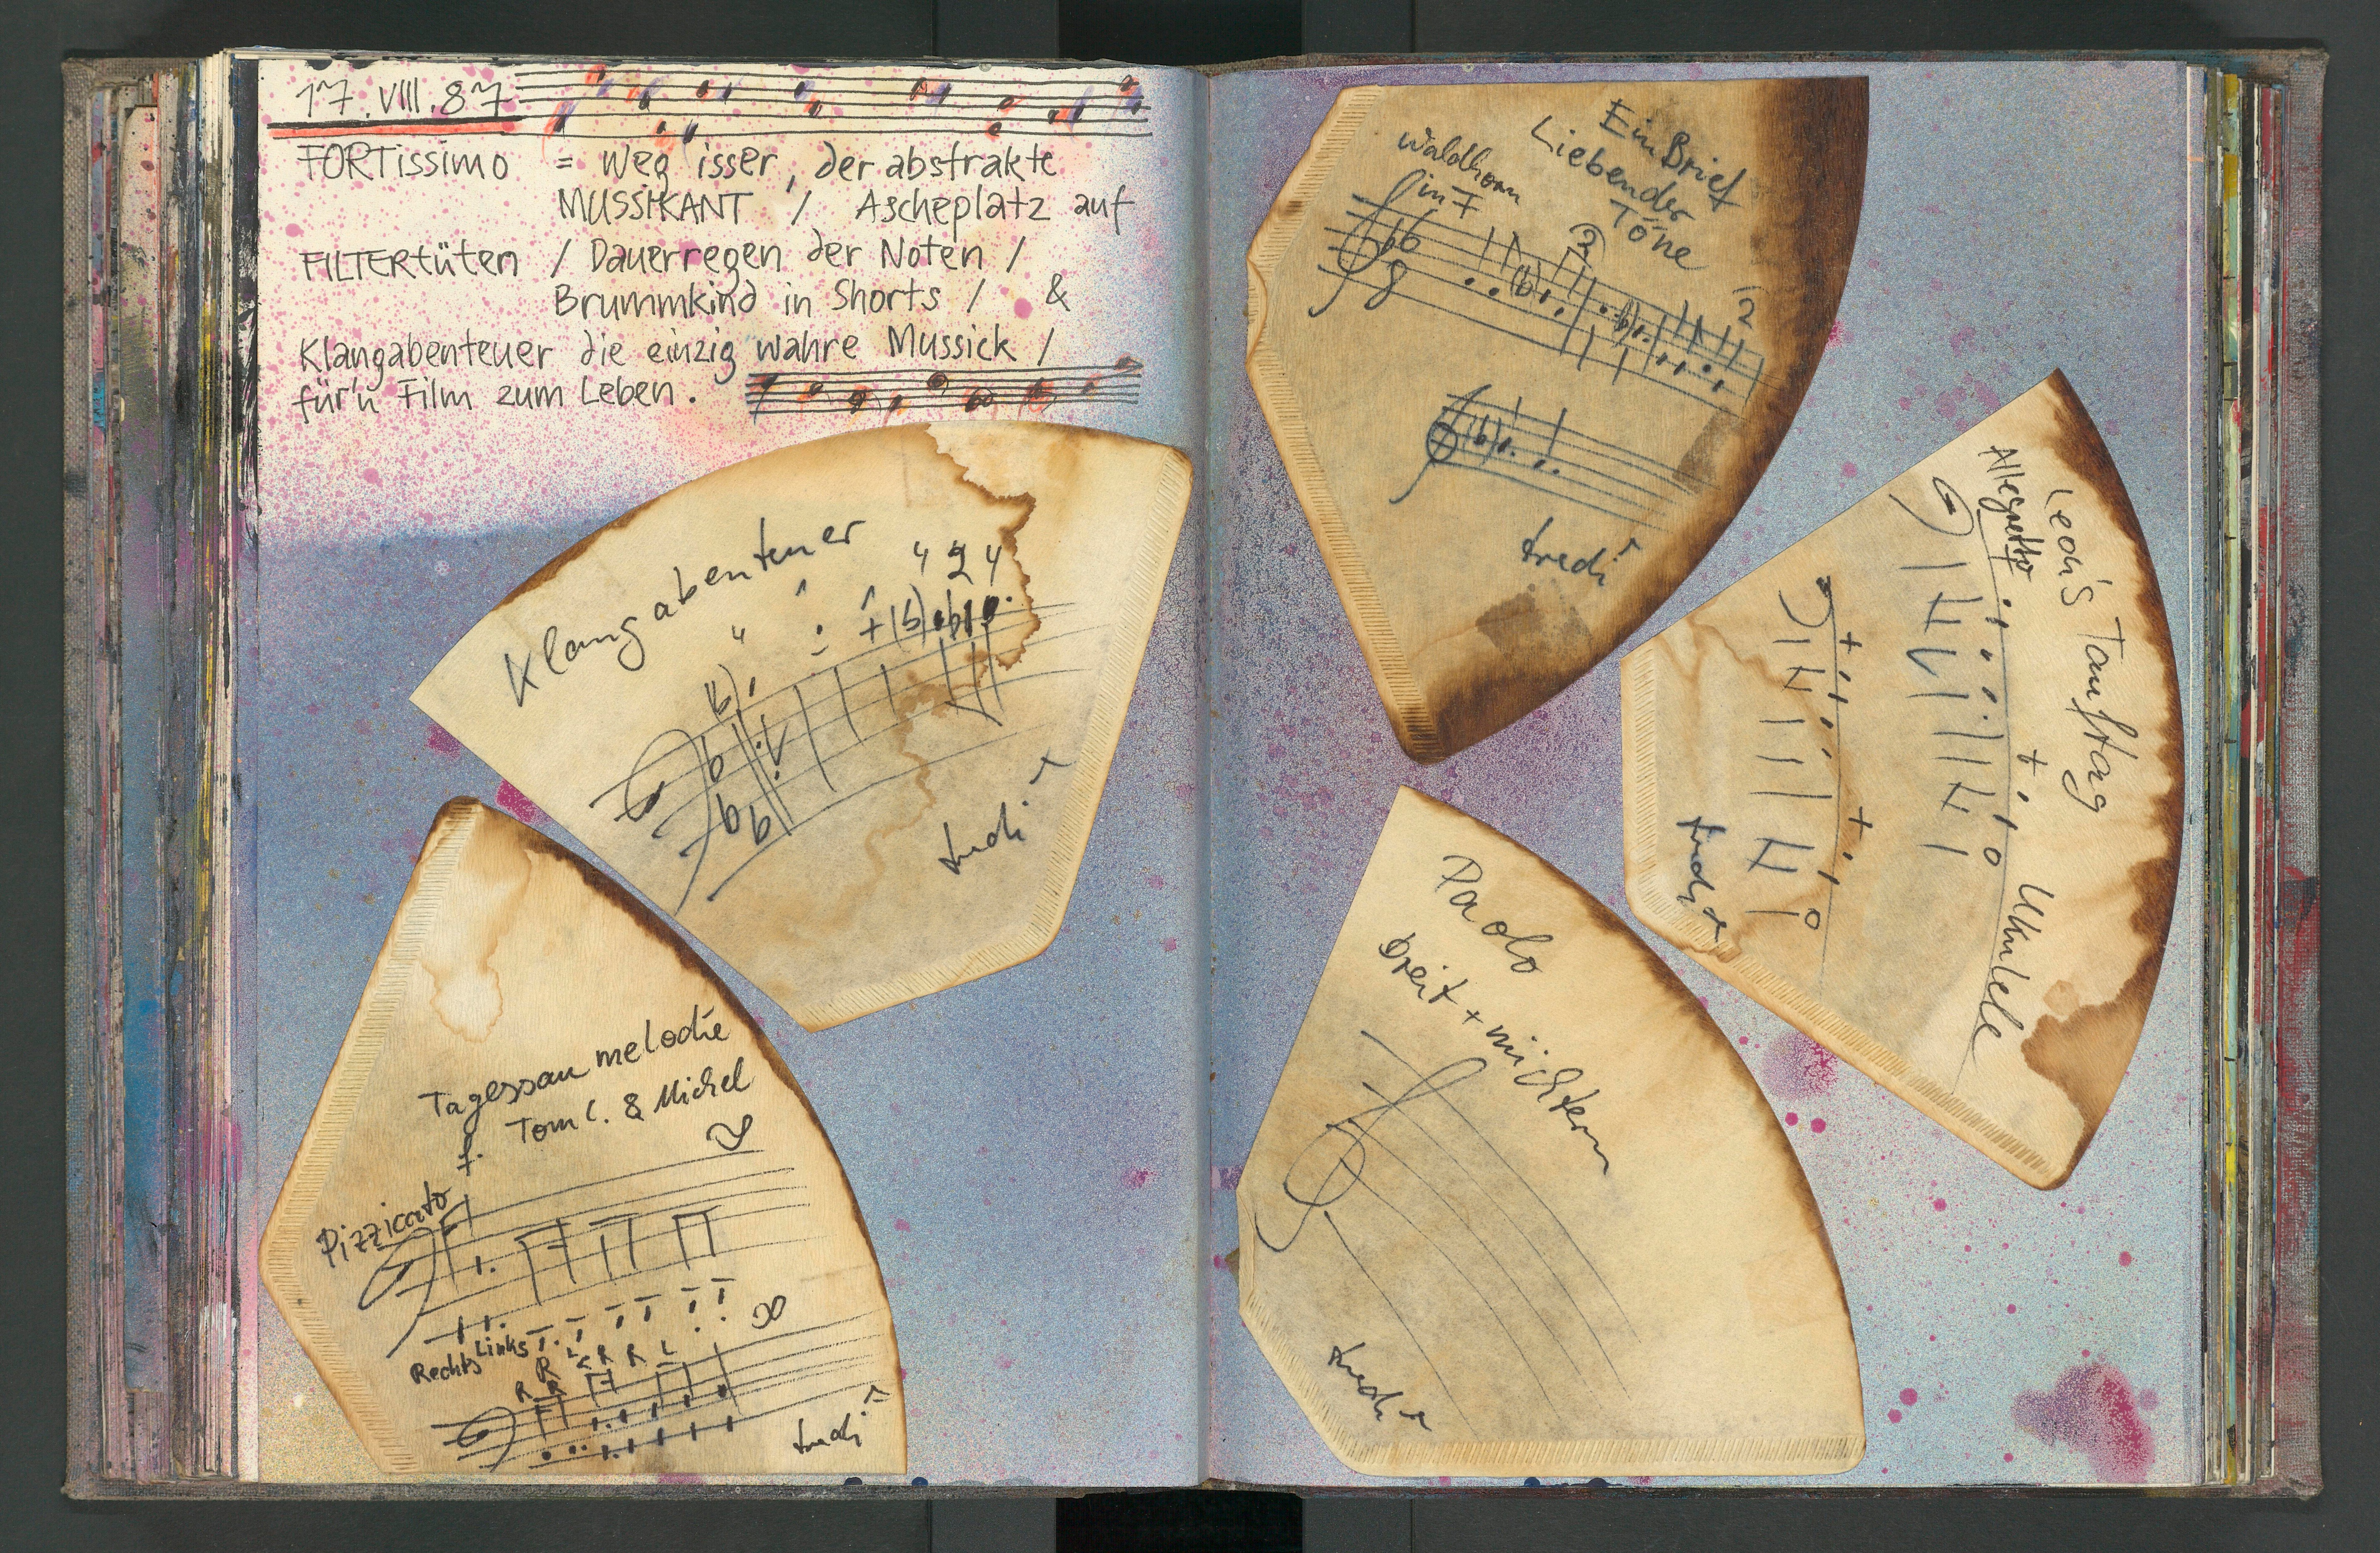 17.VIII.87
FORTissimo = Weg isser, der abstrakte
MUSSIKANT / Ascheplatz auf
FILTERtüten / Dauerregen der Noten /
Brummkind in Shorts / &
Klangabenteuer die einzig wahre Mussick /
für'n Film zum Leben.
Klangabenteuer
Tagessaumelodie
Tom C. & Michel
Pizzicato
Rechts Links
R R L R R L
R
Ein Brief
Liebender
Töne
Waldhorn
in F
2
2
Leon's Tauftag
Allegretto
Ukulele
Paolo
breit + nüchtern